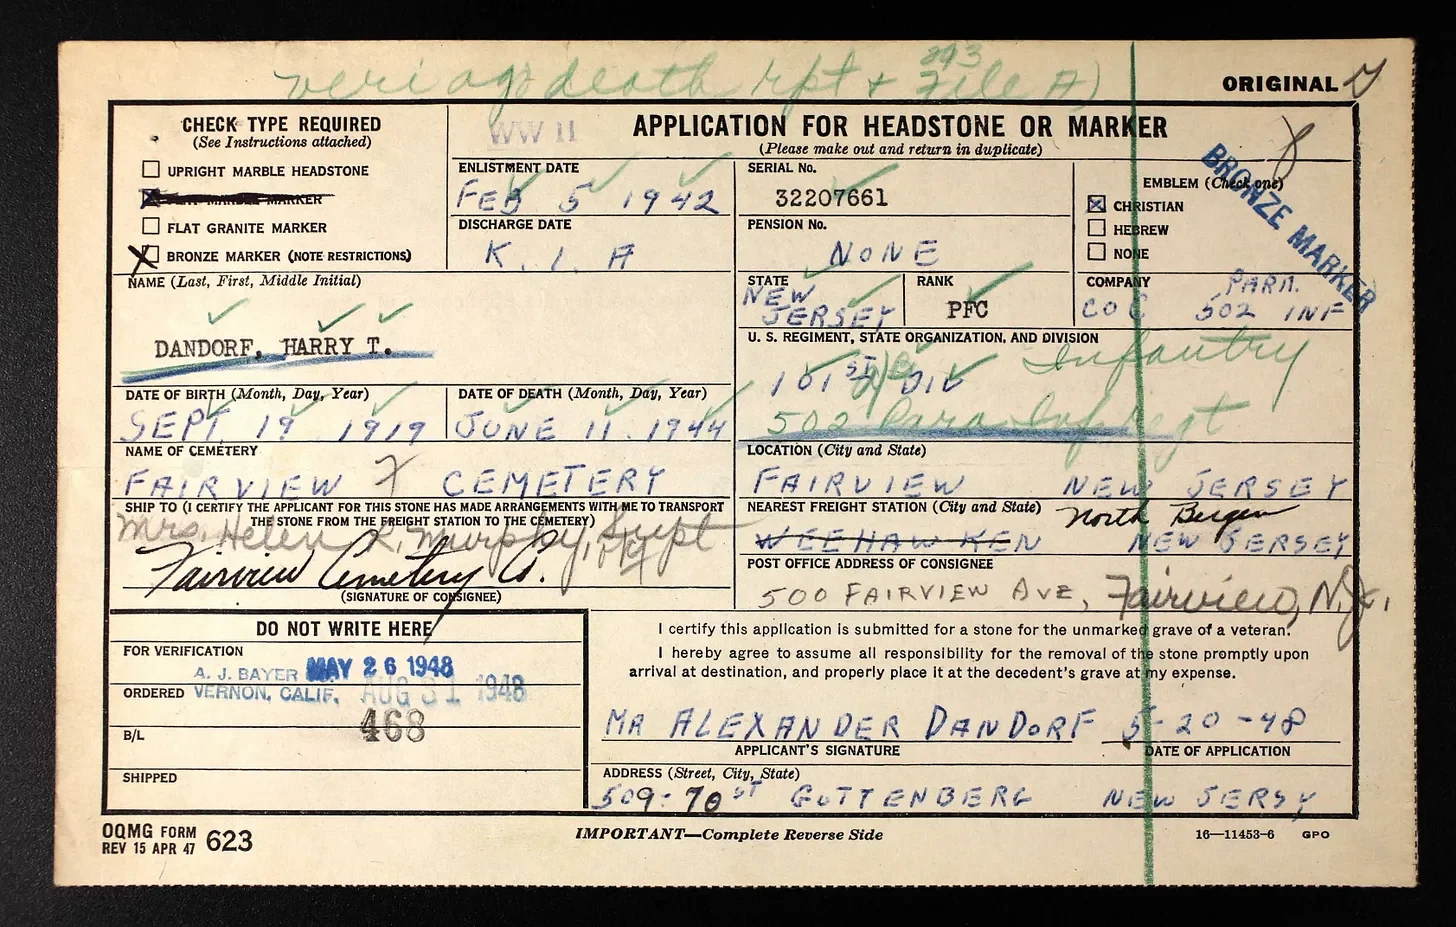 veri age death rpt + File A)
893
ORIGINAL
CHECK TYPE REQUIRED
(See Instructions attached)
UPRIGHT MARBLE HEADSTONE
FLAT MARBLE MARKER
FLAT GRANITE MARKER
X BRONZE MARKER (NOTE RESTRICTIONS)
WW II
APPLICATION FOR HEADSTONE OR MARKER
(Please make out and return in duplicate)
ENLISTMENT DATE
FEB 5 1942
DISCHARGE DATE
K. I. A
SERIAL No.
32207661
PENSION No.
NONE
EMBLEM (Check one)
CHRISTIAN
HEBREW
NONE
BRONZE MARKER
NAME (Last, First, Middle Initial)
DANDORF, HARRY T.
STATE
NEW
JERSEY
RANK
PFC
COMPANY
PARA.
CO C 502 INF
U. S. REGIMENT, STATE ORGANIZATION, AND DIVISION
Infantry
101ST DIV
502 Para Inf Regt
DATE OF BIRTH (Month, Day, Year)
SEPT 19 1919
DATE OF DEATH (Month, Day, Year)
JUNE 11. 1944
NAME OF CEMETERY
FAIRVIEW CEMETERY
LOCATION (City and State)
FAIRVIEW NEW JERSEY
SHIP TO (I CERTIFY THE APPLICANT FOR THIS STONE HAS MADE ARRANGEMENTS WITH ME TO TRANSPORT
THE STONE FROM THE FREIGHT STATION TO THE CEMETERY)
Mrs. Helen R. Murphy, Supt
Fairview Cemetery Co.
(SIGNATURE OF CONSIGNEE)
NEAREST FREIGHT STATION (City and State)
North Bergen
WEEHAWKEN NEW JERSEY
POST OFFICE ADDRESS OF CONSIGNEE
500 FAIRVIEW AVE, Fairview, N.J.
DO NOT WRITE HERE
FOR VERIFICATION
A. J. BAYER MAY 26 1948
ORDERED VERNON, CALIF. AUG 31 1948
468
B/L
SHIPPED
I certify this application is submitted for a stone for the unmarked grave of a veteran.
I hereby agree to assume all responsibility for the removal of the stone promptly upon
arrival at destination, and properly place it at the decedent's grave at my expense.
MR ALEXANDER DANDORF 5-20-48
APPLICANT'S SIGNATURE
DATE OF APPLICATION
ADDRESS (Street, City, State)
509-70ST GUTTENBERG NEW JERSY
OQMG FORM
REV 15 APR 47 623
IMPORTANT—Complete Reverse Side
16—11453-6 GPO